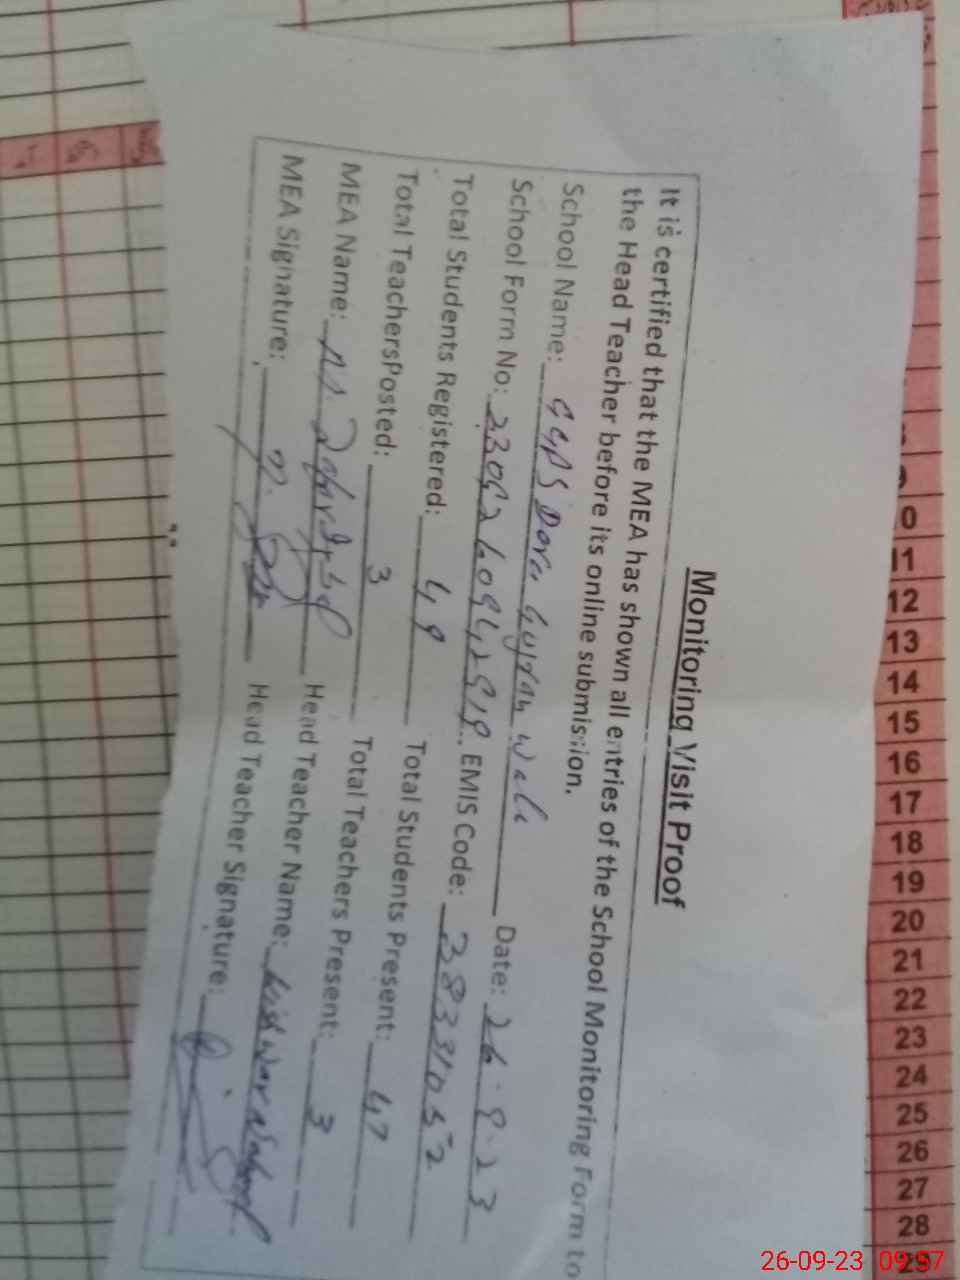 Monitoring Visit Proof
It is certified that the MEA has shown all entries of the School Monitoring Form to
the Head Teacher before its online submission.
School Name: GGPS Dora Gujran Wala Date: 26.9.23
School Form No: EMIS Code: 38331052
Total Students Registered: 49 Total Students Present: 47
Total TeachersPosted: 3 Total Teachers Present: 3
MEA Name: Head Teacher Name: Kishwar
MEA Signature: Head Teacher Signature:
10
11
12
13
14
15
16
17
18
19
20
21
22
23
24
25
26
27
28
29
26-09-23 09:57